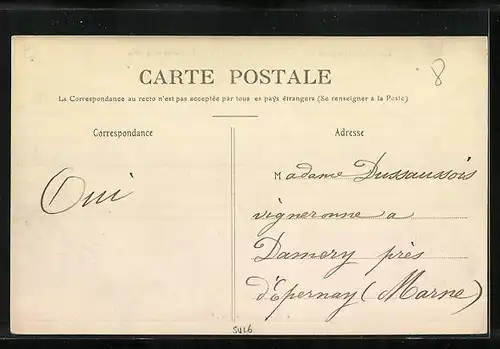 CARTE POSTALE
8
La Correspondance au recto n'est pas acceptée par tous es pays étrangers (Se renseigner a la Poste)
Correspondance
Oui
Adresse
Madame Dussaussois
vigneronne a
Damery près
d'Epernay (Marne)
SUL6